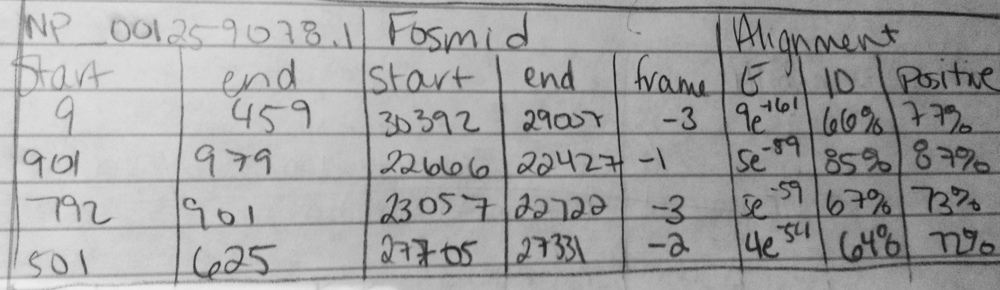 NP_001259078.1 Fosmid Alignment
Start end Start end frame E ID Positive
9 459 30392 -3 9e-161 66% 77%
901 979 22666 22427 -1 5e-89 85% 87%
792 901 23057 22722 -3 5e-59 67% 73%
501 625 27705 27331 -2 4e-54 64% 72%